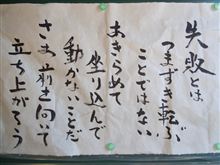 失敗とは
つまずき転ぶ
ことではない
あきらめて
坐り込んで
動かないことだ
さあ前を向いて
立ち上がろう